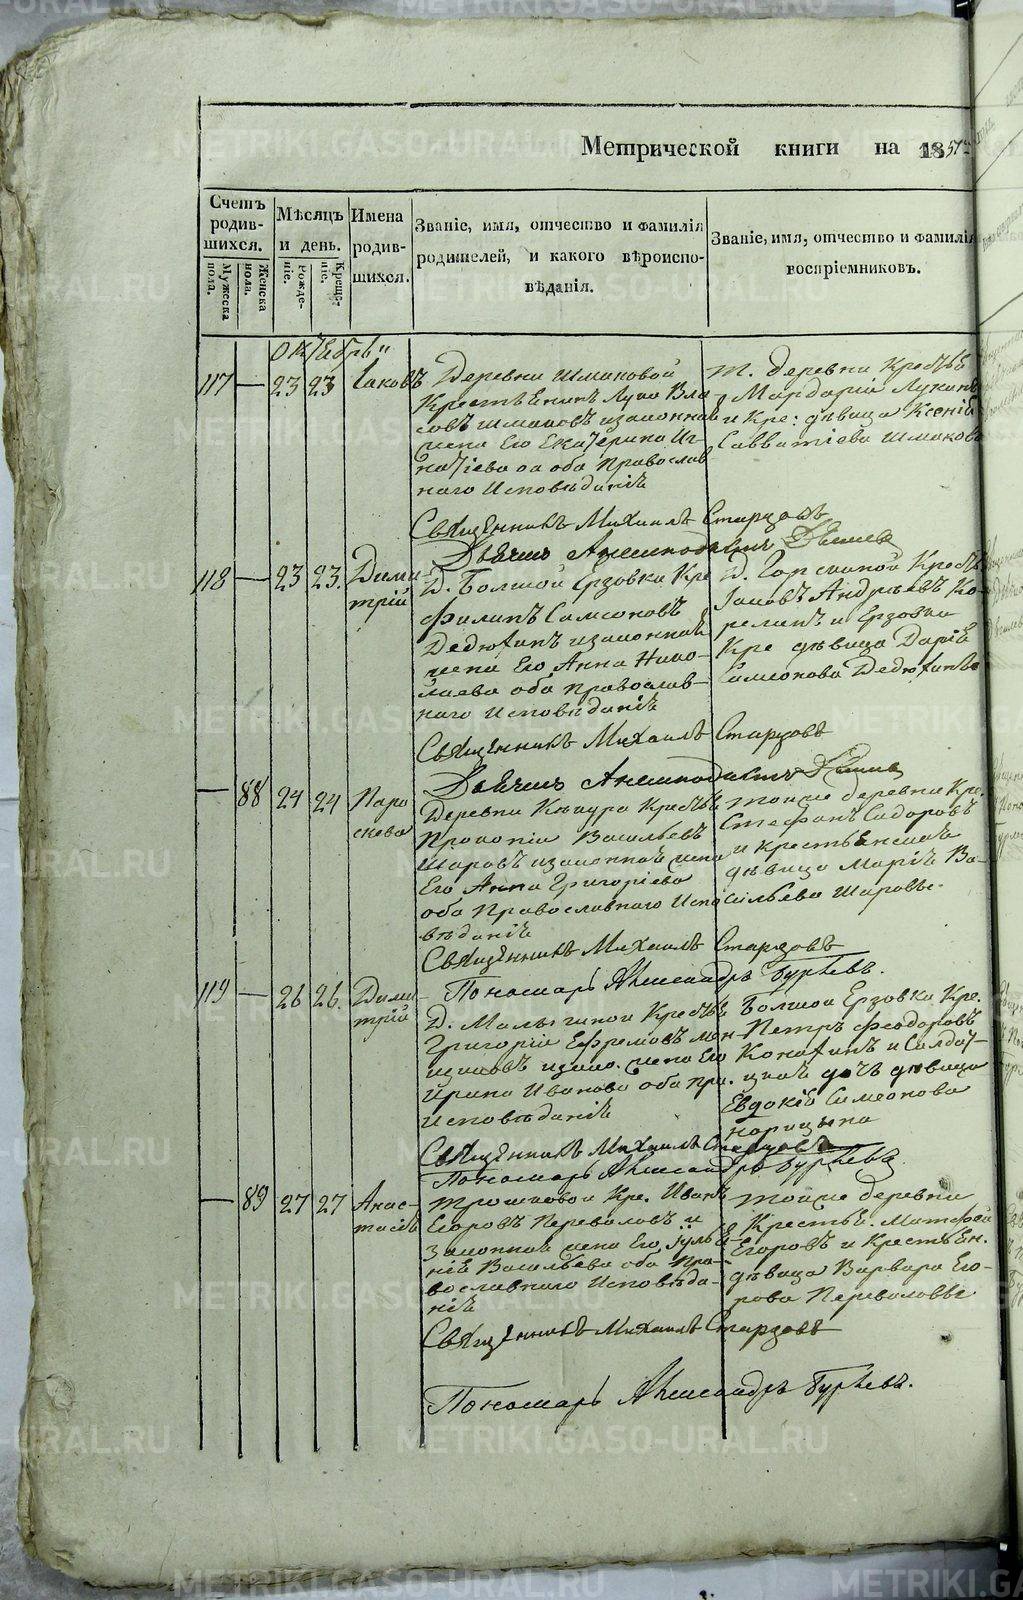 Метрической книги на 1851
Счетъ родив-шихся.
Мужеска пола.
Женска пола.
Мѣсяцъ и день.
Рожде-ніе.
Креще-ніе.
Имена родив-шихся.
Званіе, имя, отчество и фамилія
родителей, и какого вѣроиспо-
вѣданія.
Званіе, имя, отчество и фамилія
воспріемниковъ.
Октябрь
117 — 23 23 Іаковъ
Деревни Шмаковой
Крестьянинъ Лука Вла
совъ Шмаковъ изаконная
жена Его Екатерина Иг-
натіева оа оба Православ
наго Исповѣданія
т. деревни
Мардарій Лукинъ
и Кре: дѣвица Ксенія
Савватіева Шмакова
Священникъ Михаилъ Старцовъ
118 — 23 23. Дими-
трій
Д. Болшой Ерзовки Кре
Филипъ Самсоновъ
Дедюхинъ изаконная
жена Его Анна Нико-
лаева оба православ-
наго Исповѣданія
Іаковъ Андреевъ Ко-
релинъ и Ерзовки
Кре дѣвица Дарія
Самсонова Дедюхина
Священникъ Михаилъ Старцовъ
— 88 24 24 Пара
скева
Прокопій Васильевъ
Шаровъ изаконная жена
Его Анна Григоріева
оба Православнаго Испо
вѣданія
тойже деревни Кре.
Стефанъ Сидоровъ
и крестьянская
дѣвица Марія Ва-
сильева Шарова.
Священникъ Михаилъ Старцовъ
Пономарь Александръ Гурьевъ.
119 — 26 26. Дими-
трій
Григорій Ефремовъ
жена Его
Ирина Иванова оба пра.
Исповѣданія
Болшой Ерзовки Кре.
Петръ Феодоровъ
и Солдат-
дочь дѣвица
Евдокія Симеонова
Священникъ Михаилъ Старцовъ
Пономарь Александръ Гурьевъ
— 89 27 27 Анас-
тасія
Трошковой Кре. Иванъ
Егоровъ Переваловъ и
Законная жена Его Іулiа-
нія Васильева оба Пра-
вославнаго Исповѣда-
нія
тойже деревни
Крестья. Матфей
Егоровъ и Крестьян.
дѣвица Варвара Его-
рова Перевалова
Священникъ Михаилъ Старцовъ
Пономарь Александръ Гурьевъ.
METRIKI.GASO-URAL.RU